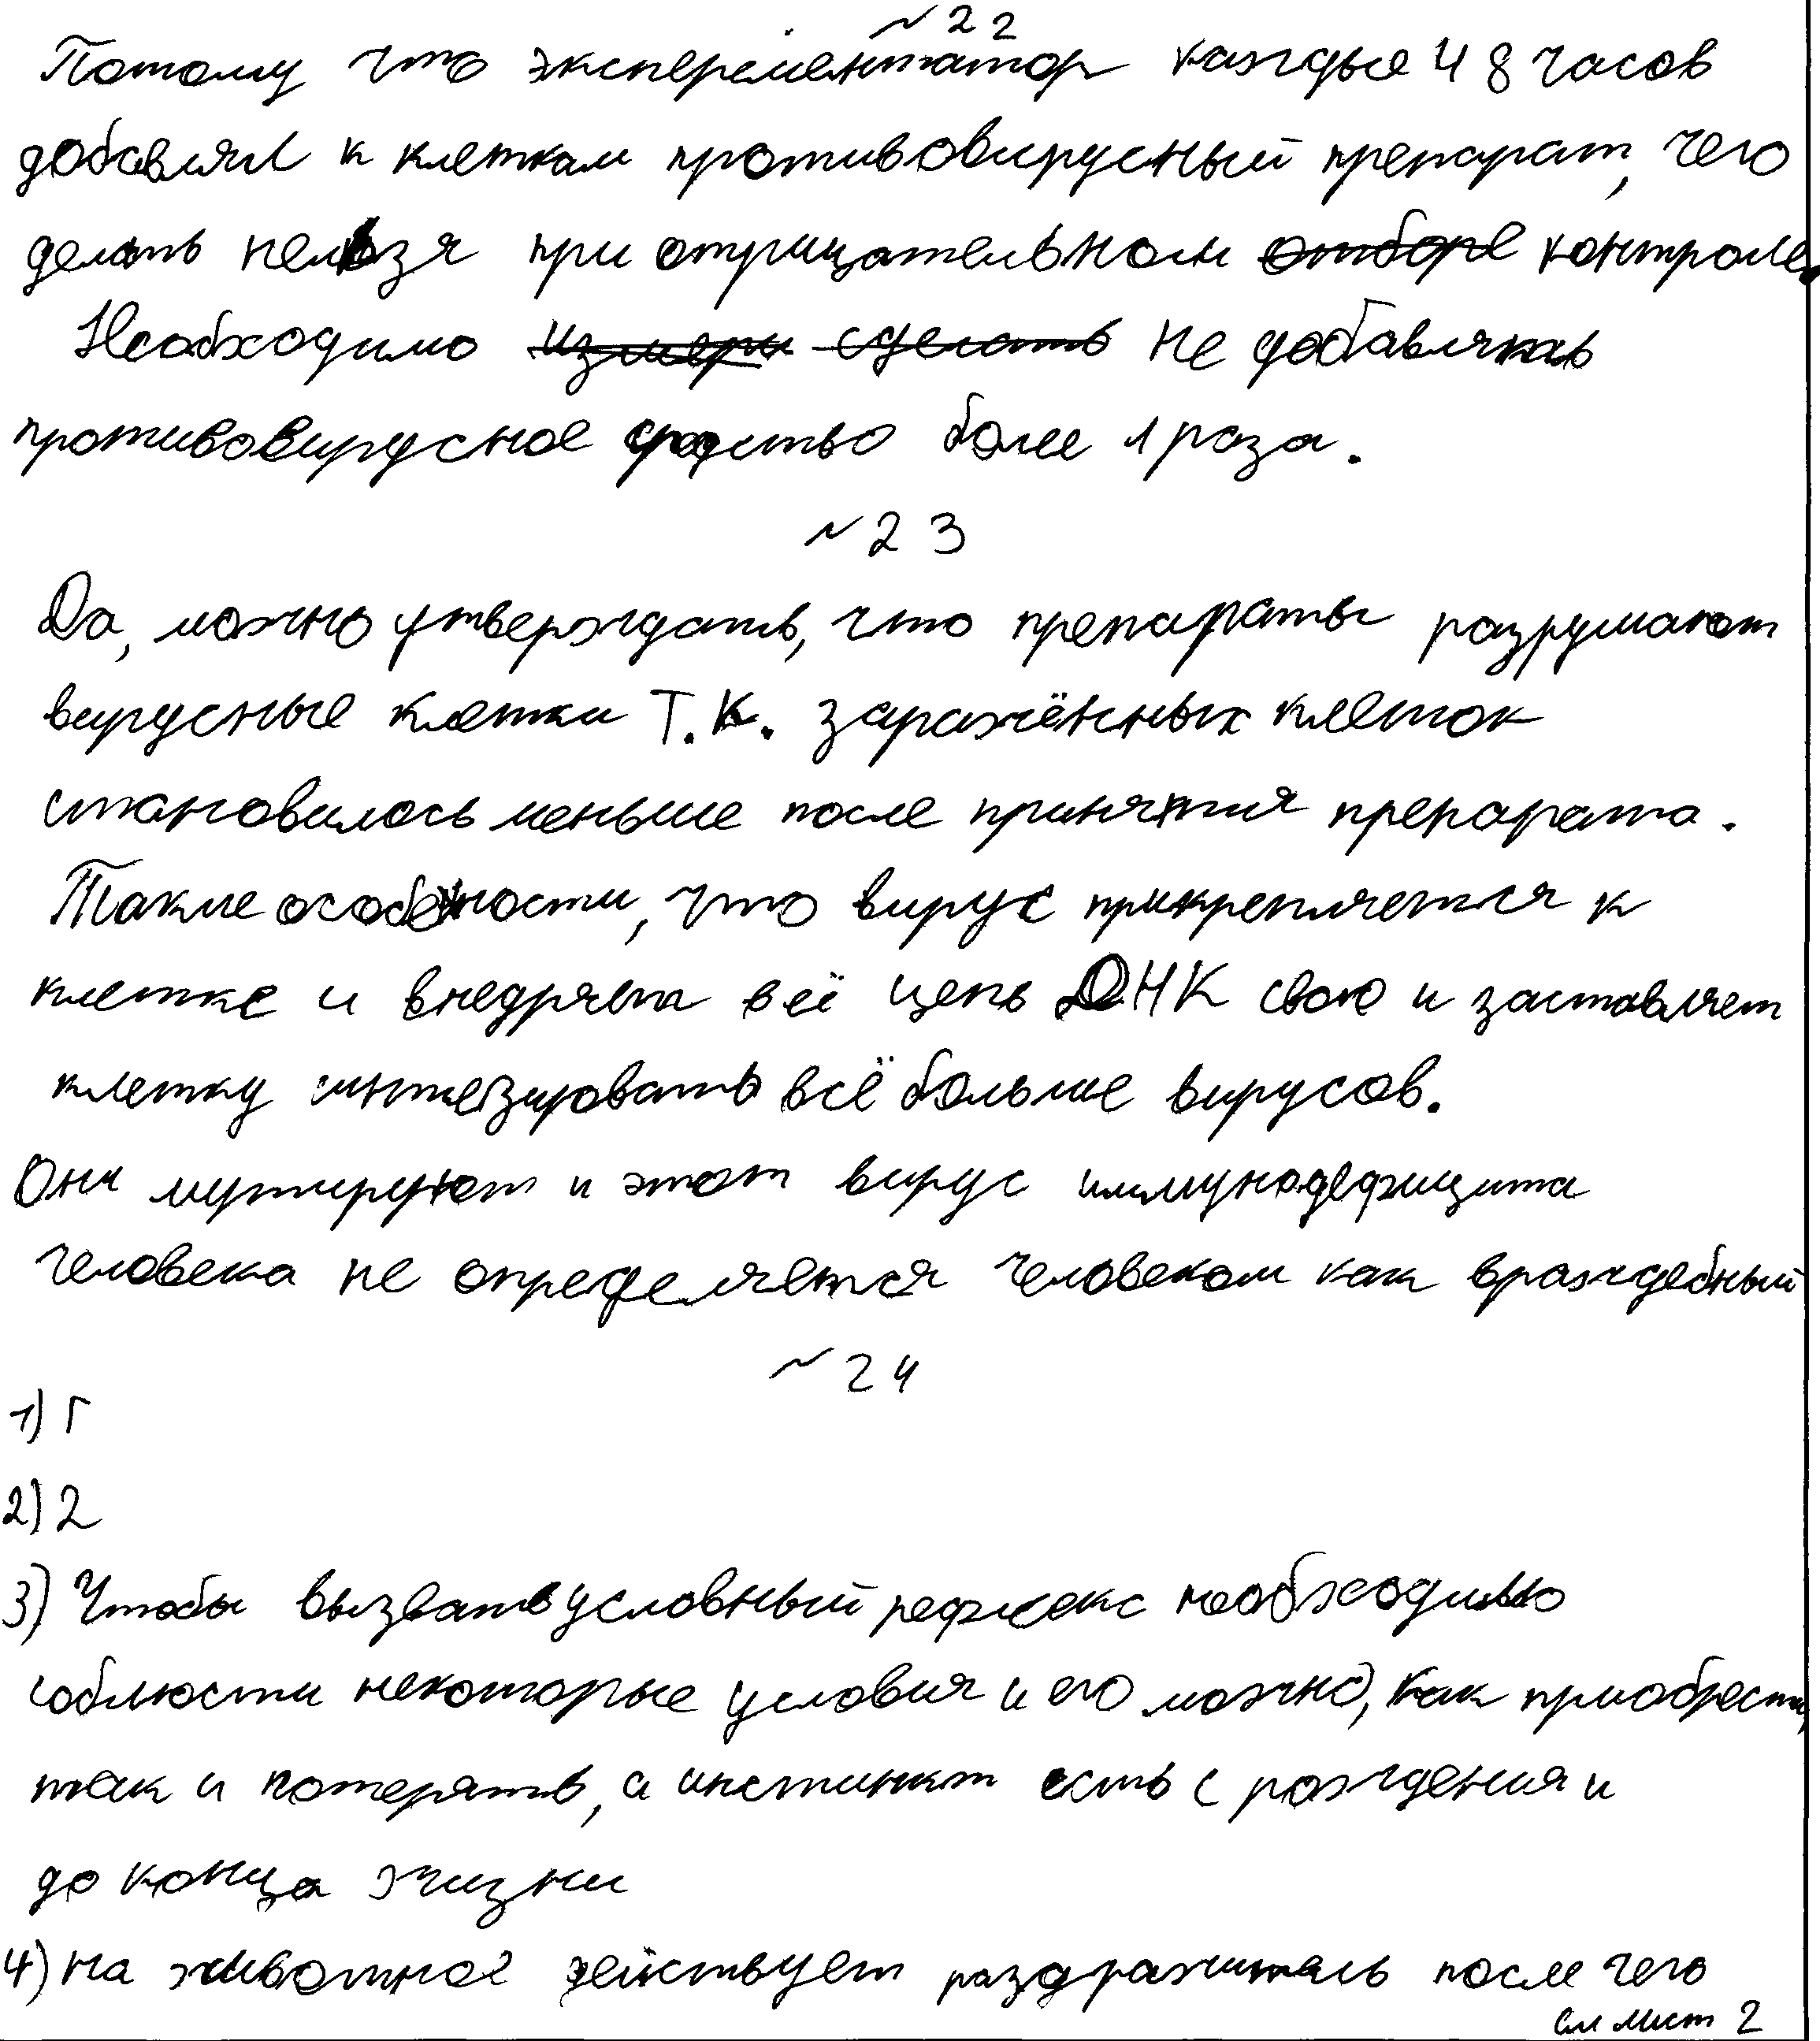 ~ 22
Потому что эксперементатор каждые 48 часов
добавлял к клеткам противовирусный препарат, чего
делать нельзя при отрицательном отборе контроле.
Необходимо измери сделать не добавлять
противовирусное средство более 1 раза.
~ 23
Да, можно утверждать, что препараты разрушают
вирусные клетки т.к. заражённых клеток
становилось меньше после принятия препарата.
Такие особености, что вирус прикрепляется к
клетке и внедряет в её цепь ДНК свою и заставляет
клетку синтезировать всё больше вирусов.
Они мутируют и этот вирус иммунодефицита
человека не определяется человеком как враждебный
~ 24
1) Г
2) 2
3) Чтобы вызвать условный рефлекс необходимо
соблюсти некоторые условия и его можно, как приобрести,
так и потерять, а инстинкт есть с рождения и
до конца жизни
4) на животное действует раздражитель после чего
см лист 2